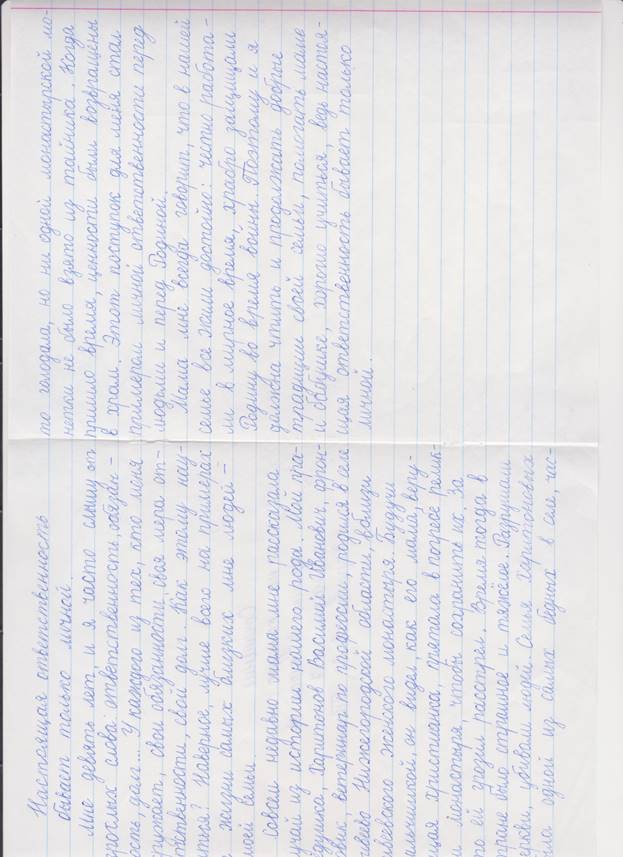 Настоящая ответственность
бывает только личной
Мне девять лет, и я часто слышу от
рослых слова: ответственность, обязан-
ость, долг... У каждого из тех, кто меня
ружает, свои обязанности, своя мера от-
тственности, свой долг. Как этому нау-
иться? Наверное, лучше всего на примерах
жизни самых близких мне людей –
моей семьи.
Совсем недавно мама мне рассказала
учай из истории нашего рода. Мой пра-
дедушка, Харитонов Василий Иванович, фрон-
вик, ветеринар по профессии, родился в селе
веево Нижегородской области, вблизи
ивеевского женского монастыря. Будучи
альчишкой, он видел, как его мама, веру-
щая христианка, прятала в погребе релик-
и монастыря, чтобы сохранить их. За
о ей грозил расстрел. Время тогда в
тране было страшное и тяжёлое. Разрушали
еркви, убивали людей. Семья Харитоновых
ла одной из самых бедных в селе, час-
то голодала, но ни одной монастырской мо-
нетки не было взято из тайника. Когда
пришло время, ценности были возвращены
в храм. Этот поступок для меня стал
примером личной ответственности перед
людьми и перед Родиной.
Мама мне всегда говорит, что в нашей
семье все жили достойно: честно работа-
ли в мирное время, храбро защищали
Родину во время войны. Поэтому и я
должна чтить и продолжать добрые
традиции своей семьи, помогать маме
и бабушке, хорошо учиться, ведь настоя-
щая ответственность бывает только
личной.